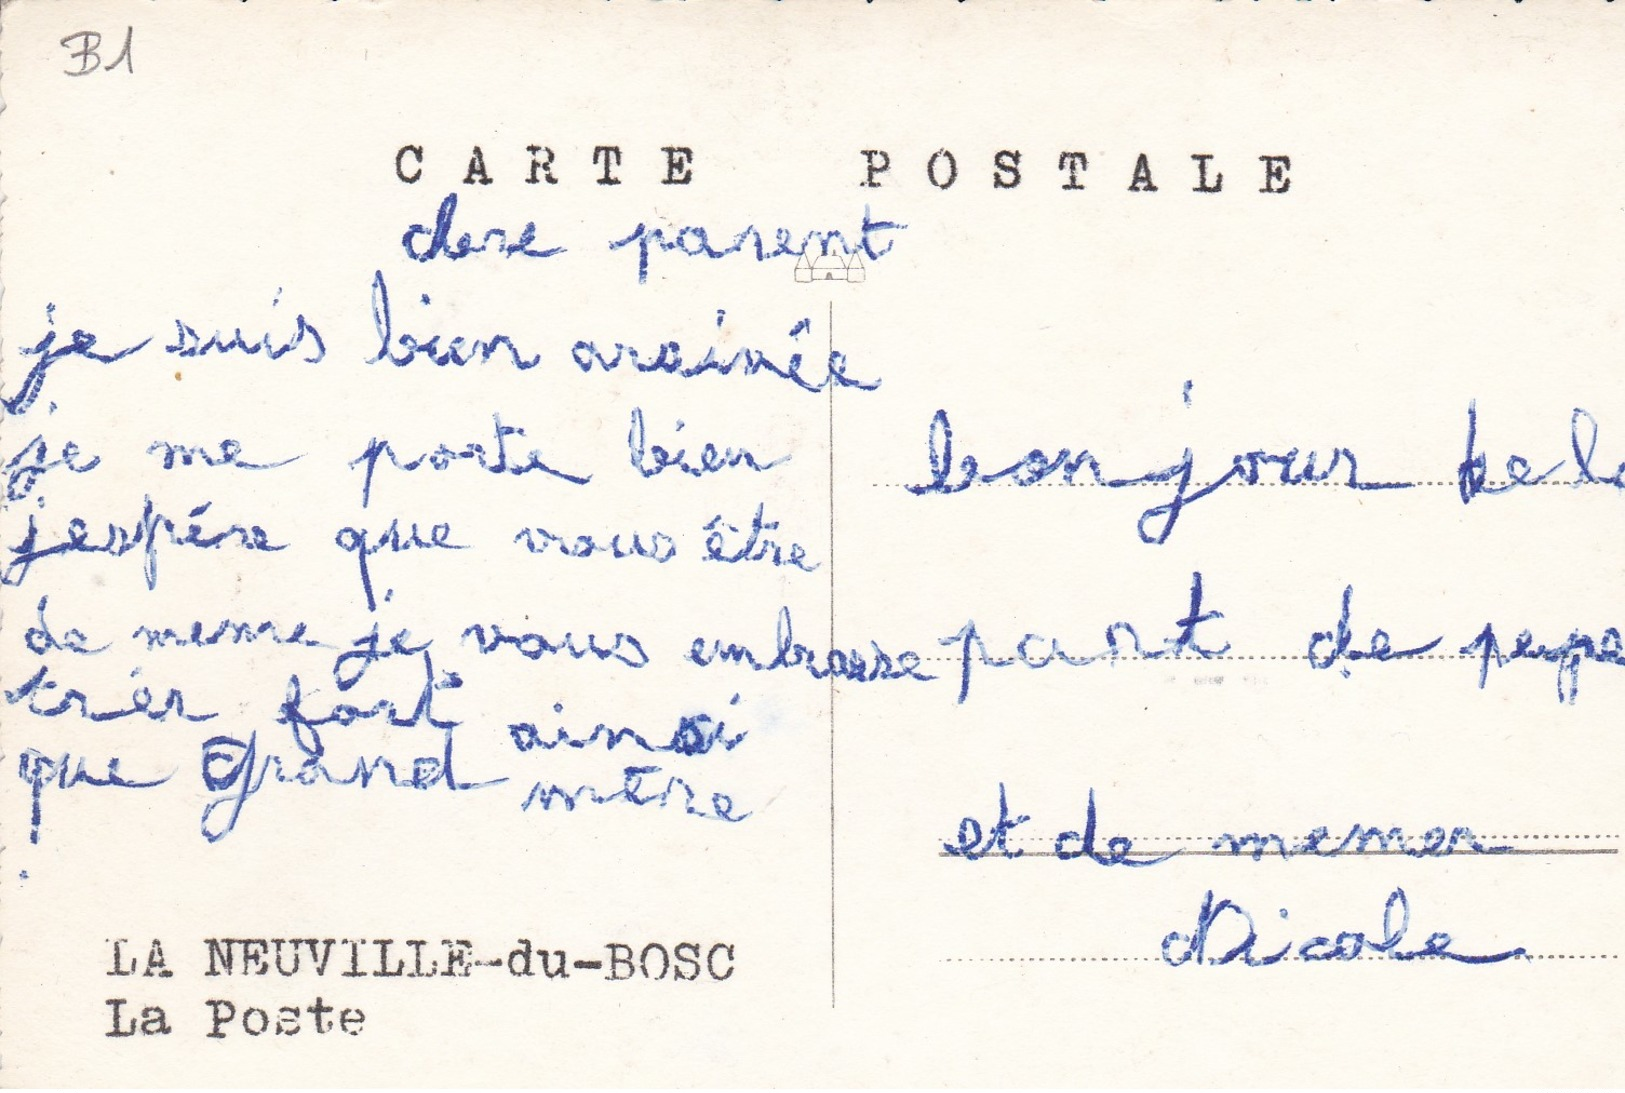 B1
CARTE POSTALE
chere parent
je suis bien araivée
je me porte bien
jespére que vous être
de meme je vous embrasse
trér fort ainsi
que grand mère
bonjour de la
part de pepe
et de memer
Nicole
LA NEUVILLE-du-BOSC
La Poste